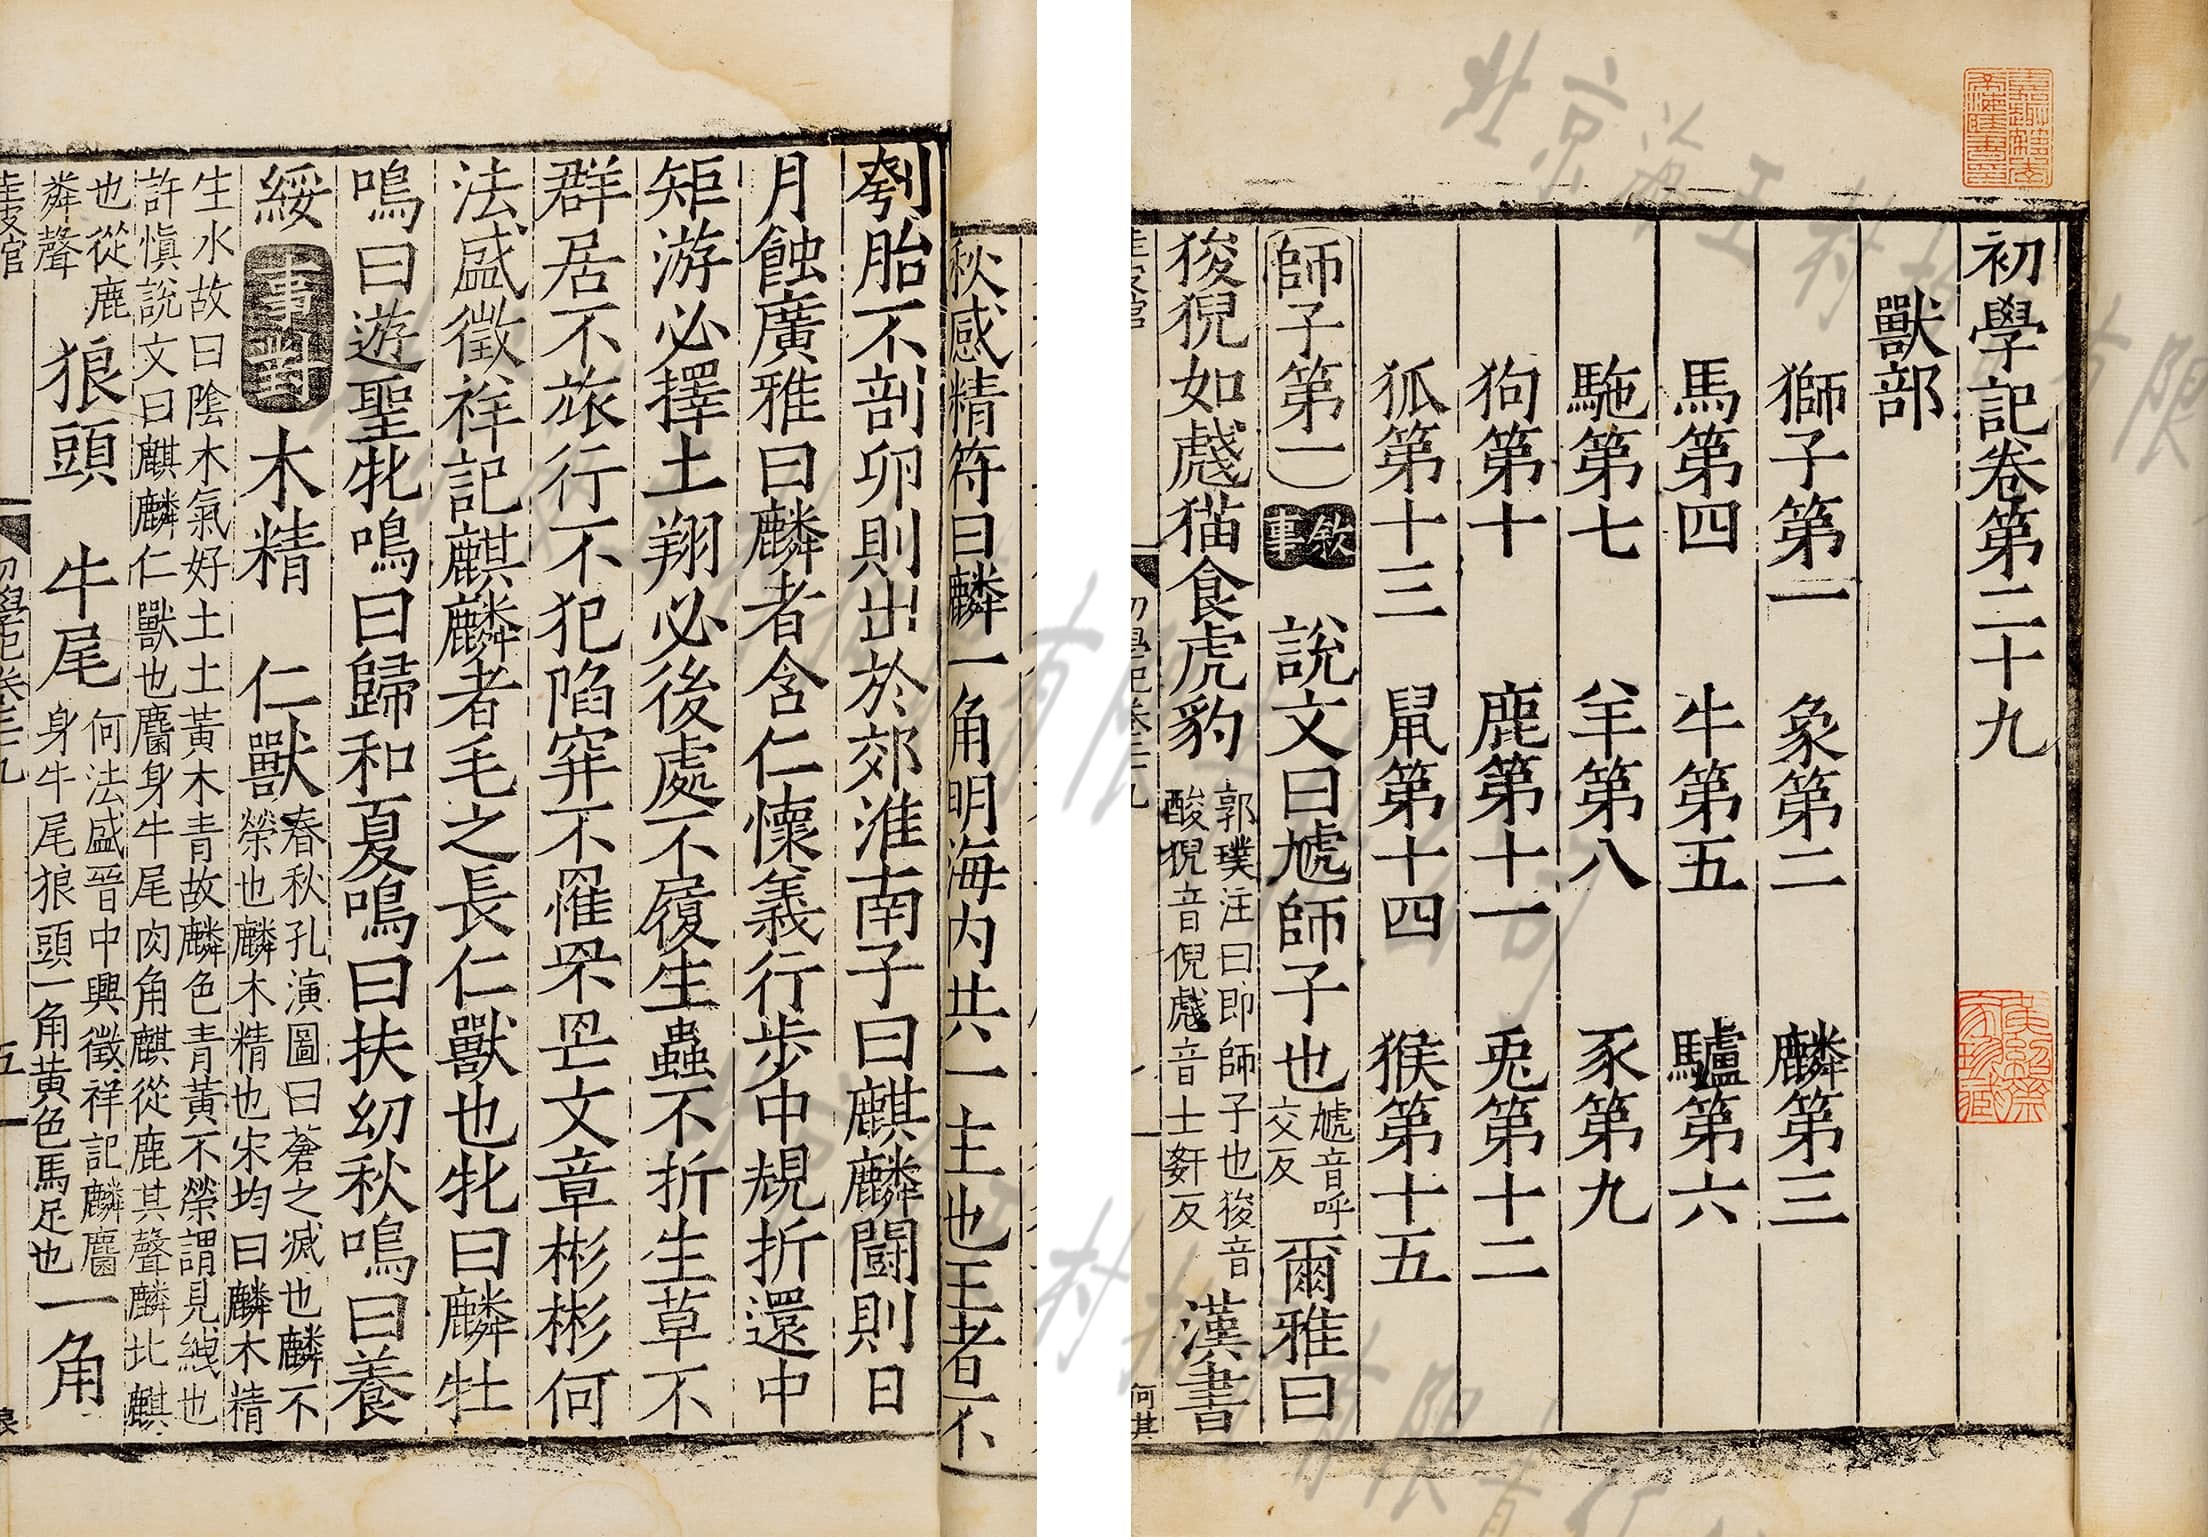 初學記卷第二十九
獸部
獅子第一 象第二 麟第三
馬第四 牛第五 驢第六
駞第七 羊第八 豕第九
狗第十 鹿第十一 兎第十二
狐第十三 鼠第十四 猴第十五
師子第一 敘事 說文曰虓師子也 虓音呼交反 爾雅曰
狻猊如虥猫食虎豹 郭璞注曰即師子也狻音酸猊音倪虥音士姧反 漢書
何其
秋感精符曰麟一角明海内共一主也王者不
刳胎不剖卵則出於郊淮南子曰麒麟鬬則日
月蝕廣雅曰麟者含仁懷義行步中規折還中
矩游必擇土翔必後處不履生蟲不折生草不
群居不旅行不犯陷穽不罹罘罡文章彬彬何
法盛徵祥記麒麟者毛之長仁獸也牝曰麟牡
鳴曰遊聖牝鳴曰歸和夏鳴曰扶幼秋鳴曰養
綏 事對 木精 仁獸 春秋孔演圖曰蒼之滅也麟不榮也麟木精也宋均曰麟木精
生水故曰陰木氣好土土黃木青故麟色青黃不榮謂見絏也
許慎說文曰麒麟仁獸也麕身牛尾肉角麒從鹿其聲麟北麒
也從鹿粦聲 狼頭 牛尾 何法盛晉中興徵祥記麟麕身牛尾狼頭一角黃色馬足也 一角
初學記卷二十九
五